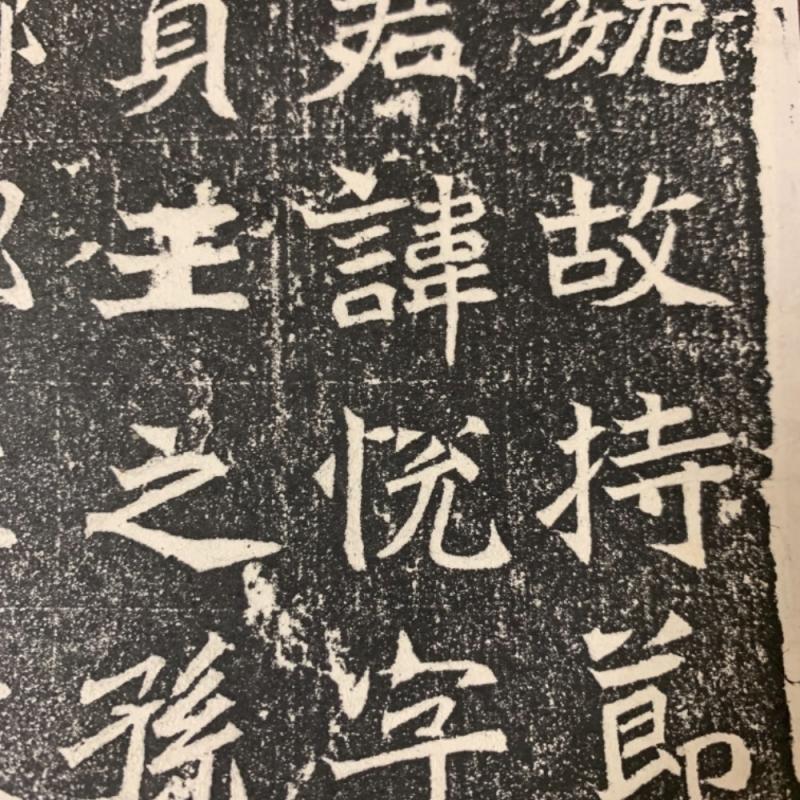 魏故持節
君諱悅字
貞王之孫